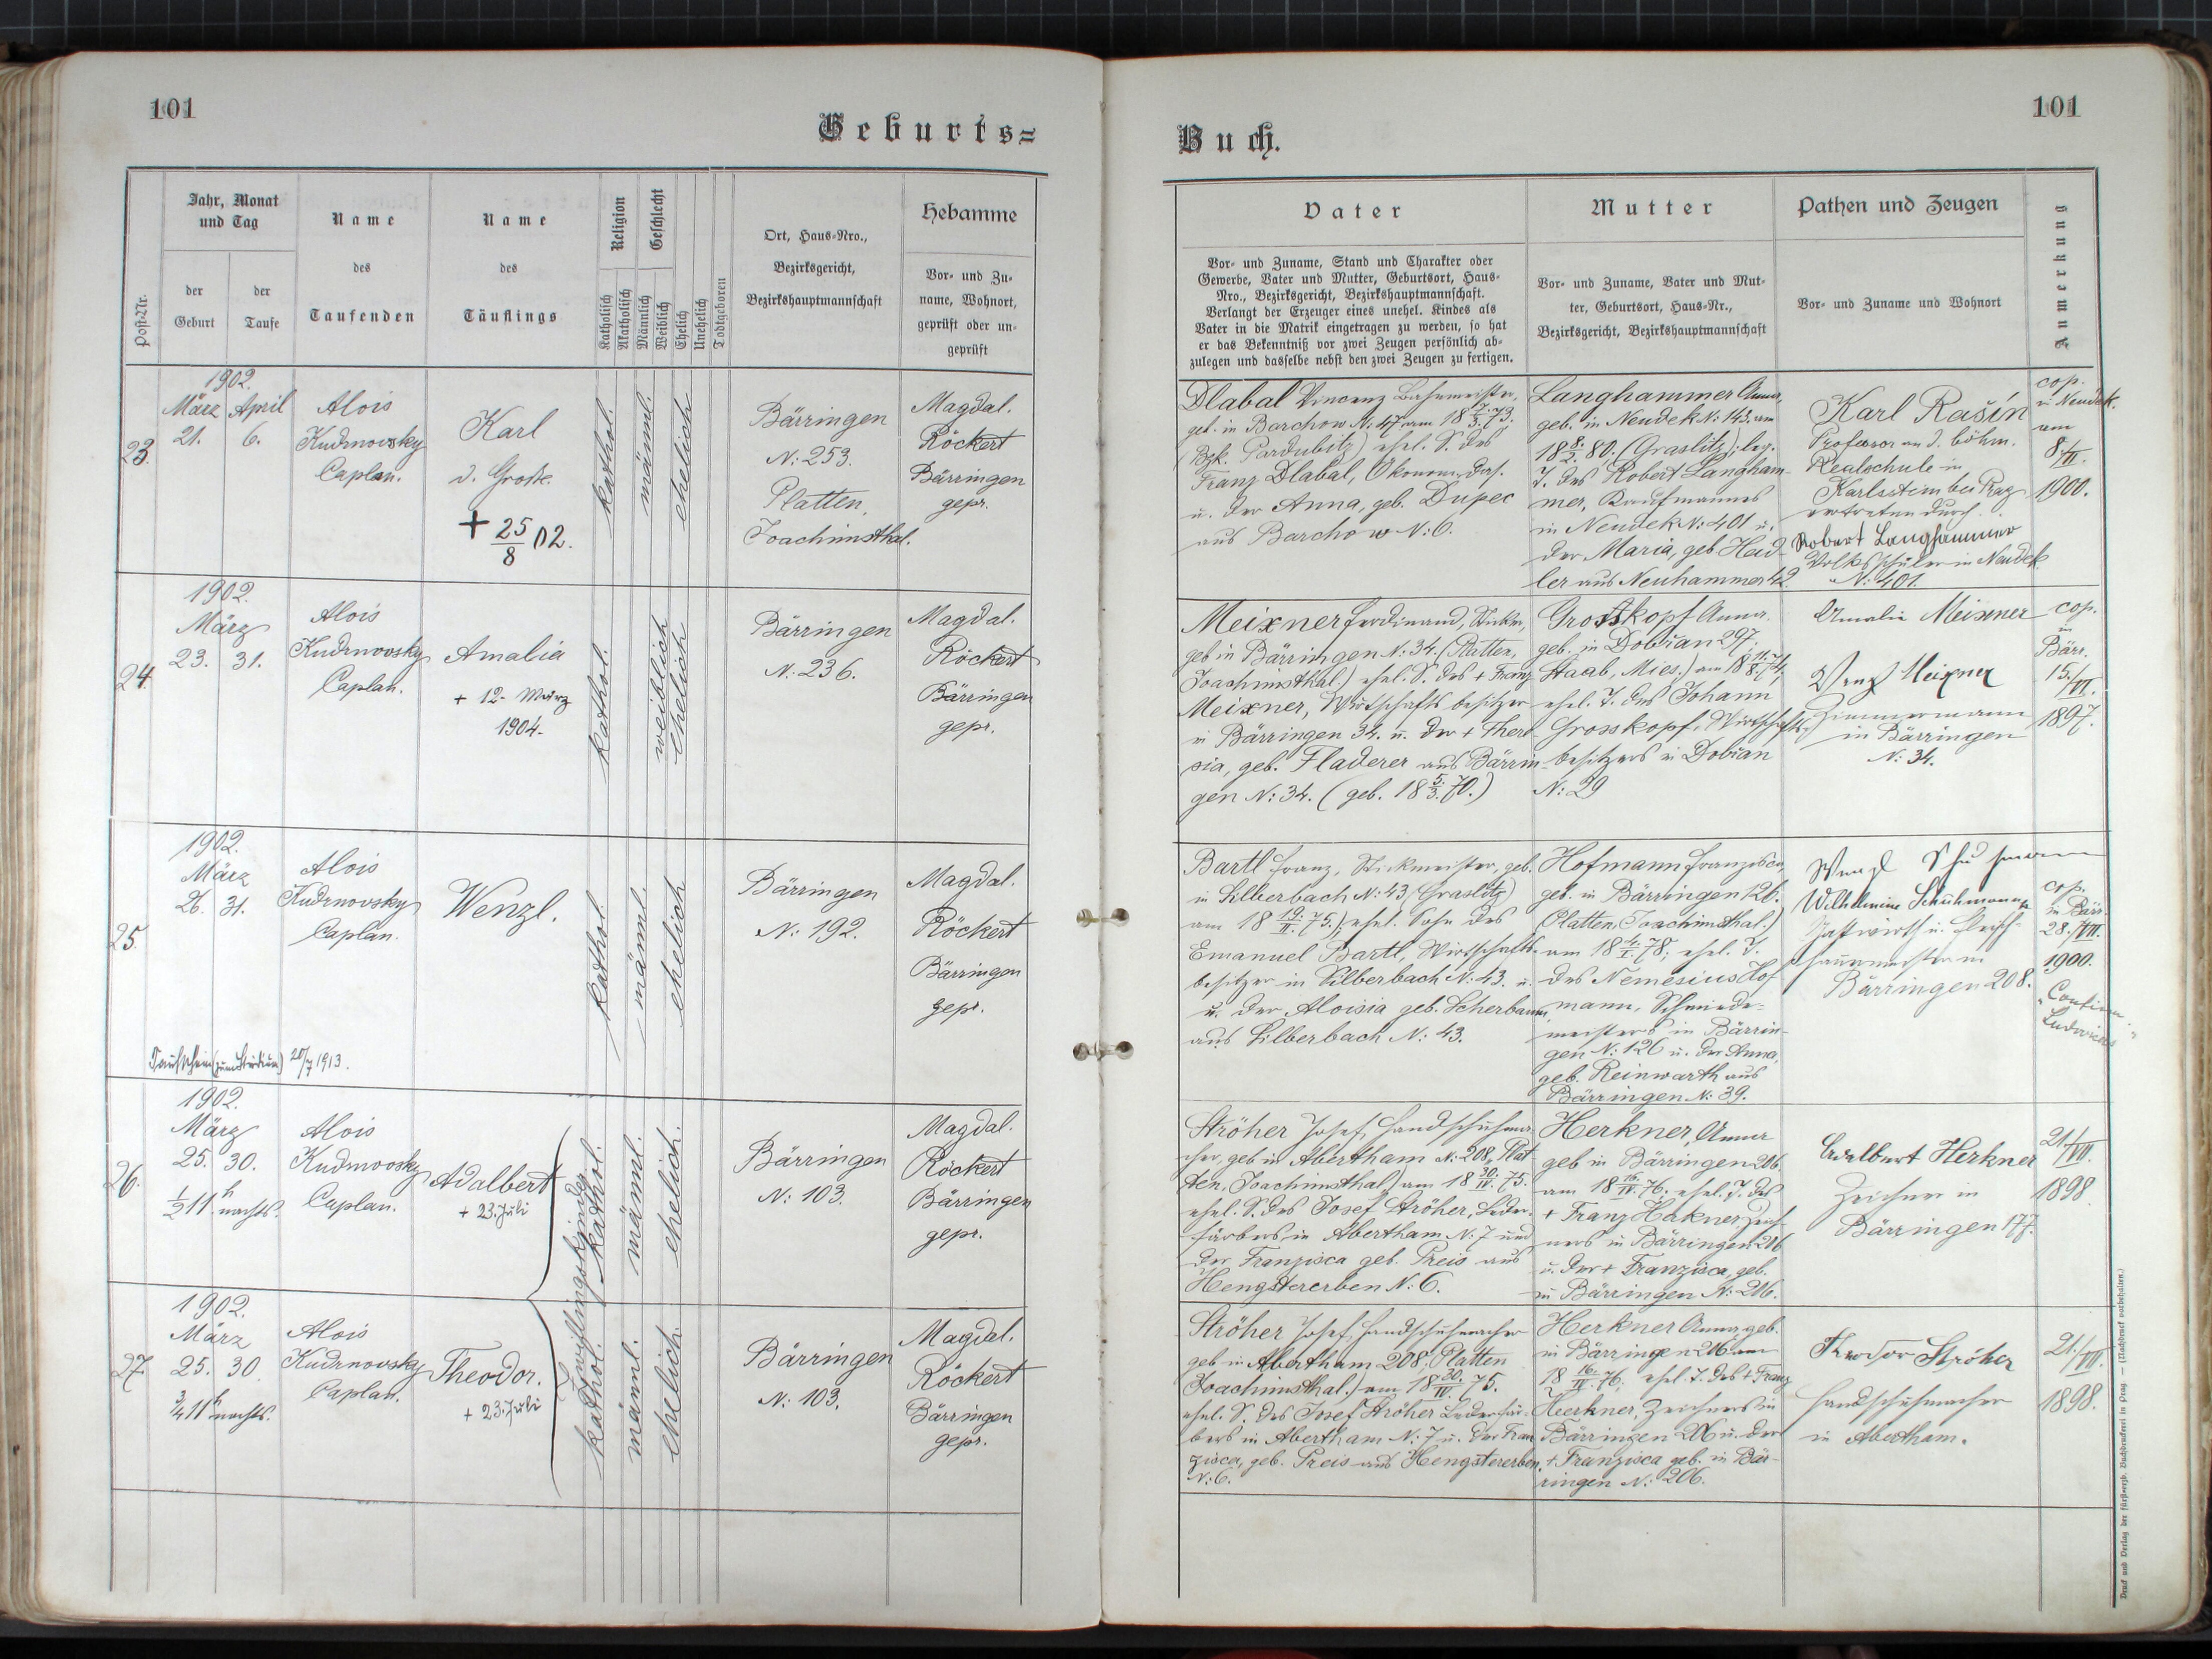 101
Geburts=
Post-Nr.
Jahr, Monat
und Tag
der
Geburt
der
Taufe
Name
des
Taufenden
Name
des
Täuflings
Religion
Katholisch
Akatholisch
Geschlecht
Männlich
Weiblich
Ehelich
Unehelich
Todtgeboren
Ort, Haus-Nro.,
Bezirksgericht,
Bezirkshauptmannschaft
Hebamme
Vor- und Zu-
name, Wohnort,
geprüft oder un-
geprüft
23.
1902.
März April
21. 6.
Alois
Kudrnovsky
Caplan.
Karl
d. Große.
+ 25/8 02.
kathol.
männl.
ehelich
Bärringen
N: 253.
Platten,
Joachimsthal.
Magdal.
Röckert
Bärringen
gepr.
24.
1902.
März
23. 31.
Alois
Kudrnovsky
Caplan.
Amalia
+ 12. März
1904.
kathol.
weiblich
ehelich
Bärringen
N: 236.
Magdal.
Röckert
Bärringen
gepr.
25.
1902.
März
26. 31.
Alois
Kudrnovsky
Caplan.
Wenzl.
kathol.
männl.
ehelich
Bärringen
N: 192.
Magdal.
Röckert
Bärringen
gepr.
Taufschein (zum Studium) 20/7 1913.
26.
1902.
März
25. 30.
½11 h nachts.
Alois
Kudrnovsky
Caplan.
Adalbert
+ 23. Juli
Zwillingskinder
kathol.
männl.
ehelich.
Bärringen
N: 103.
Magdal.
Röckert
Bärringen
gepr.
27.
1902.
März
25. 30.
¾11 h nachts.
Alois
Kudrnovsky
Caplan.
Theodor.
+ 23. Juli
kathol.
männl.
ehelich.
Bärringen
N: 103.
Magdal.
Röckert
Bärringen
gepr.
101
Buch.
Vater
Vor- und Zuname, Stand und Charakter oder
Gewerbe, Vater und Mutter, Geburtsort, Haus-
Nro., Bezirksgericht, Bezirkshauptmannschaft.
Verlangt der Erzeuger eines unehel. Kindes als
Vater in die Matrik eingetragen zu werden, so hat
er das Bekenntniß vor zwei Zeugen persönlich ab-
zulegen und dasselbe nebst den zwei Zeugen zu fertigen.
Mutter
Vor- und Zuname, Vater und Mut-
ter, Geburtsort, Haus-Nr.,
Bezirksgericht, Bezirkshauptmannschaft
Pathen und Zeugen
Vor- und Zuname und Wohnort
Anmerkung
Dlabal Vincenz Bahnmeister,
geb. in Barchow N: 47 am
(Bzk. Pardubitz) ehel. S. des
Franz Dlabal, Ökonom, das.
u. der Anna, geb. Dupec
aus Barchow N: 6.
Langhammer Anna,
geb. in Neudek N: 143. am
18 8/2. 80. (Graslitz); leg.
T. des Robert Langham-
mer, Kaufmannes
in Neudek N: 401 u.
der Maria, geb. Heid-
ler aus Neuhammer 42
Karl Rašín
Professor an d. böhm.
Realschule in
bei Prag
vertreten durch
Robert Langhammer
Volksschüler in Neudek
N: 401.
cop.
in Neudek.
am
8./II.
1900.
Meixner Ferdinand, Sticker,
geb in Bärringen N: 34. (Platten,
Joachimsthal.) ehel. S. des + Franz
Meixner, Wirtschaftsbesitzer
in Bärringen 34. u. der + There-
sia, geb. Fladerer aus Bärrin-
gen N: 34. (geb. 18 5/3. 70.)
Grosskopf Anna.
geb. in Dobřan 297.
Staab, Mies.) am
ehel. T. des Johann
Grosskopf, Wirtschafts-
besitzers in Dobřan
N: 29
Amalie Meixner
Wenz Meixner
Zimmermann
in Bärringen
N: 34.
cop.
in
Bärr.
15./VI.
1897.
Bartl Franz, Stickmeister, geb.
in Silberbach N: 43 (Graslitz)
am 18 19./II. 75.); ehel. Sohn des
Emanuel Bartl, Wirtschafts-
besitzer in Silberbach N: 43. u.
u. der Aloisia geb. Scherbaum
aus Silberbach N: 43.
Hofmann Franziska,
geb. in Bärringen 126.
(Platten, Joachimsthal.)
am 18 4./I. 78; ehel. T.
des Nemesius Hof
mann, Schmiede-
meisters in Bärrin-
gen N: 126 u. der Anna,
geb. Reinwarth aus
Bärringen N: 39.
Wenzl Schuhmann
Wilhelmine Schuhmann
Gastwirth u. Fleisch-
hauermeister in
Bärringen 208.
cop.
in Bärr.
28./VIII.
1900.
Ströher Josef, Handschuhma-
cher, geb in Abertham N: 208, Plat
ten, Joachimsthal) am 18 30./IV. 75.
ehel. S. des Josef Ströher, Leder-
färbers in Abertham N: 7 und
der Franzisca geb. Preis aus
Hengstererben N: 6.
Herkner Anna
geb in Bärringen 206.
am 18 16./IV. 76. ehel. T. des
+ Franz Herkner, Zeich-
ners in Bärringen 206
u. der + Franzisca, geb.
in Bärringen N: 206.
Adalbert Herkner
Zeichner in
Bärringen 177.
21./VII.
1898
Ströher Josef, Handschuhmacher
geb in Abertham 208. Platten
Joachimsthal.) am 18 30./IV. 75.
ehel. S. des Josef Ströher Lederfär-
bers in Abertham N: 7 u. der Fran
zisca, geb. Preis aus Hengstererben
N: 6.
Herkner Anna, geb.
in Bärringen 206 am
18 16./IV. 76. ehel. T. des + Franz
Herkner, Zeichners in
Bärringen 206 u. der
+ Franzisca geb. in Bär-
ringen N: 206.
Theodor Ströher
Handschuhmacher
in Abertham.
21./VII.
1898.
Druck und Verlag der fürsterzb. Buchdruckerei in Prag. — (Nachdruck vorbehalten.)